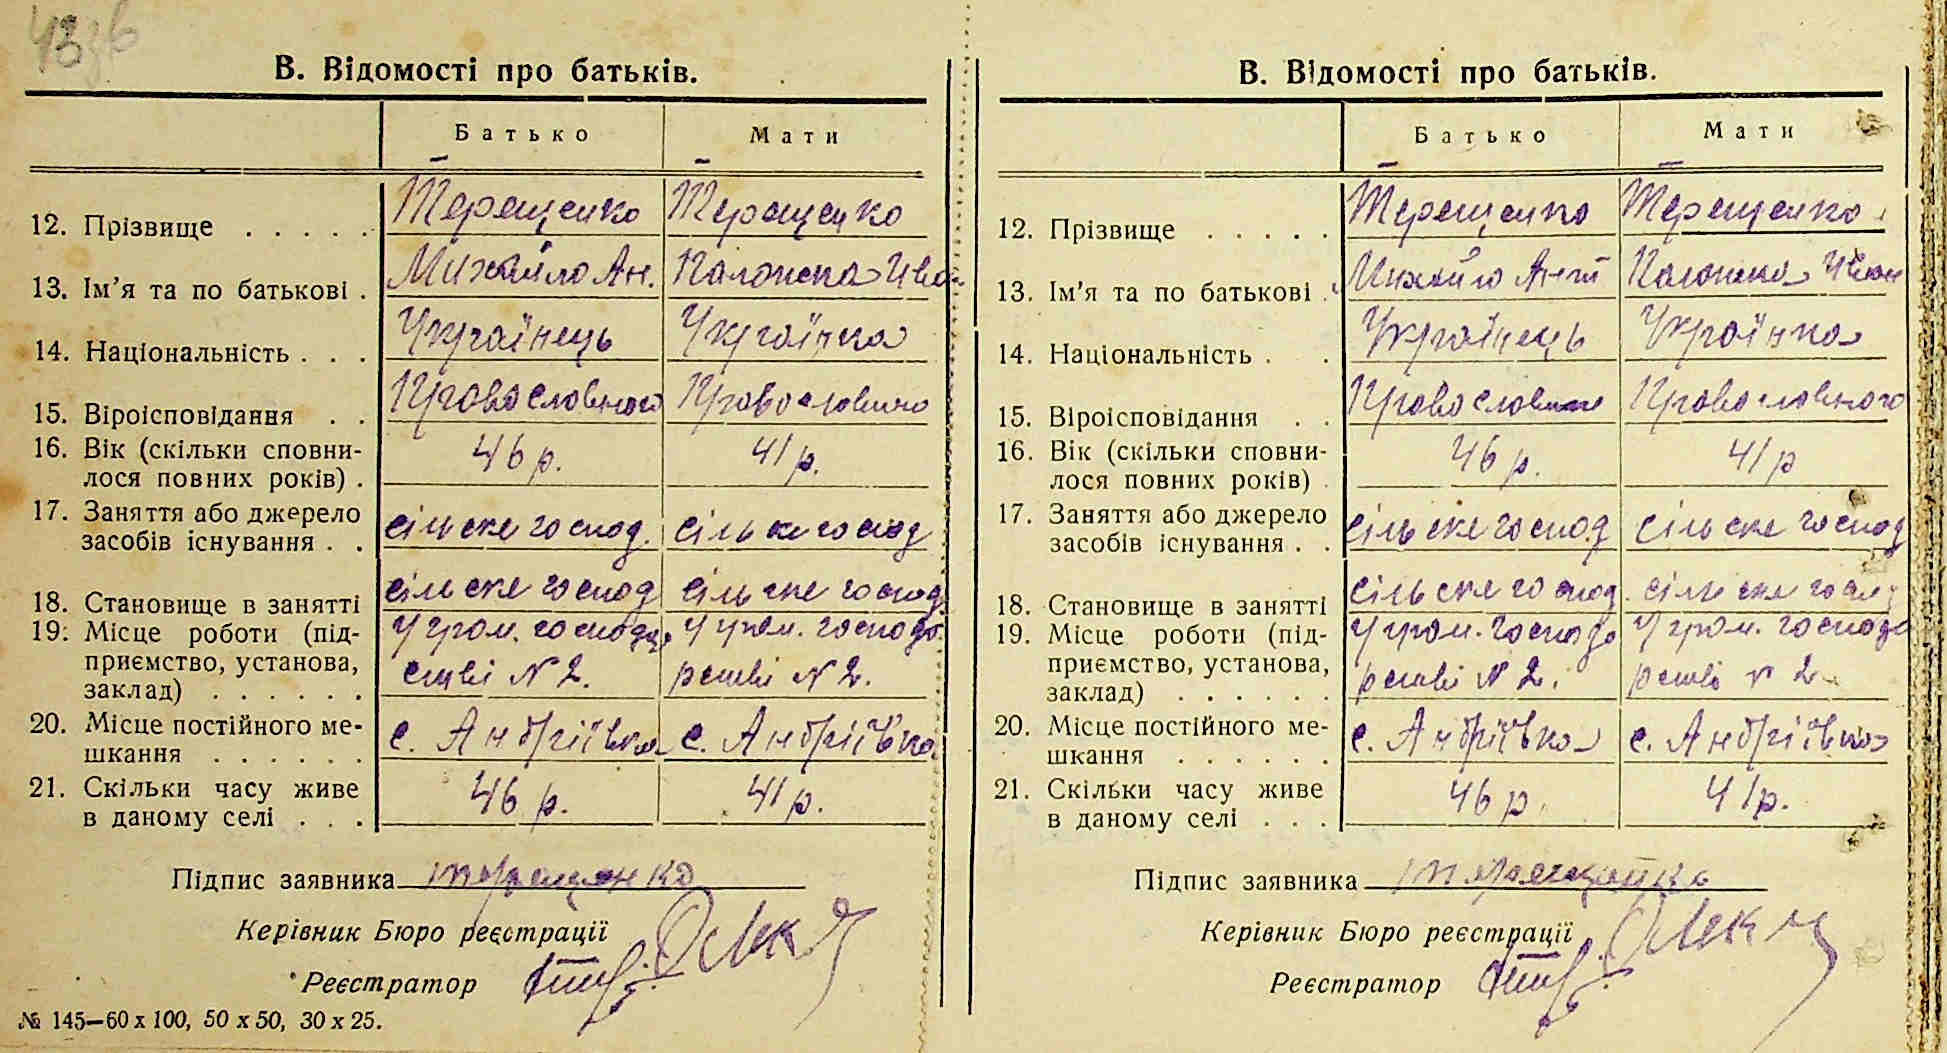 43зв
В. Відомості про батьків.
Батько Мати
12. Прізвище . . . . . Терещенко Терещенко
13. Ім’я та по батькові . Михайло Ан. Палажка Ива
14. Національність . . . Українець Українка
15. Віроісповідання . . Православного Православного
16. Вік (скільки сповни-
лося повних років) . 46 р. 41 р.
17. Заняття або джерело
засобів існування . . сільске господ. сільске господ
18. Становище в занятті сільске господ сільске господ.
19. Місце роботи (під- У гром. господар У гром. господа
приємство, установа, стві № 2. рстві № 2.
заклад) . . . . . .
20. Місце постійного ме-
шкання . . . . . . с. Андріївка с. Андріївка
21. Скільки часу живе
в даному селі . . . 46 р. 41 р.
Підпис заявника Терещенко
Керівник Бюро реєстрації
Реєстратор
№ 145—60 х 100, 50 х 50, 30 х 25.
В. Відомості про батьків.
Батько Мати
12. Прізвище . . . . . Терещенко Терещенко
13. Ім’я та по батькові . Михайло Ант Палажка Иван
14. Національність . . Українець Українка
15. Віроісповідання . . Православне Православного
16. Вік (скільки сповни-
лося повних років) . 46 р. 41 р
17. Заняття або джерело
засобів існування . . сільске господ сільске господ
18. Становище в занятті сільске господ. сільске госпд
19. Місце роботи (під- У гром. господа У гром. господа
приємство, установа, рстві № 2. рстві № 2
заклад) . . . . . .
20. Місце постійного ме-
шкання . . . . . . с. Андріївка с. Андріївка
21. Скільки часу живе
в даному селі . . . 46 р. 41 р.
Підпис заявника Терещенко
Керівник Бюро реєстрації
Реєстратор